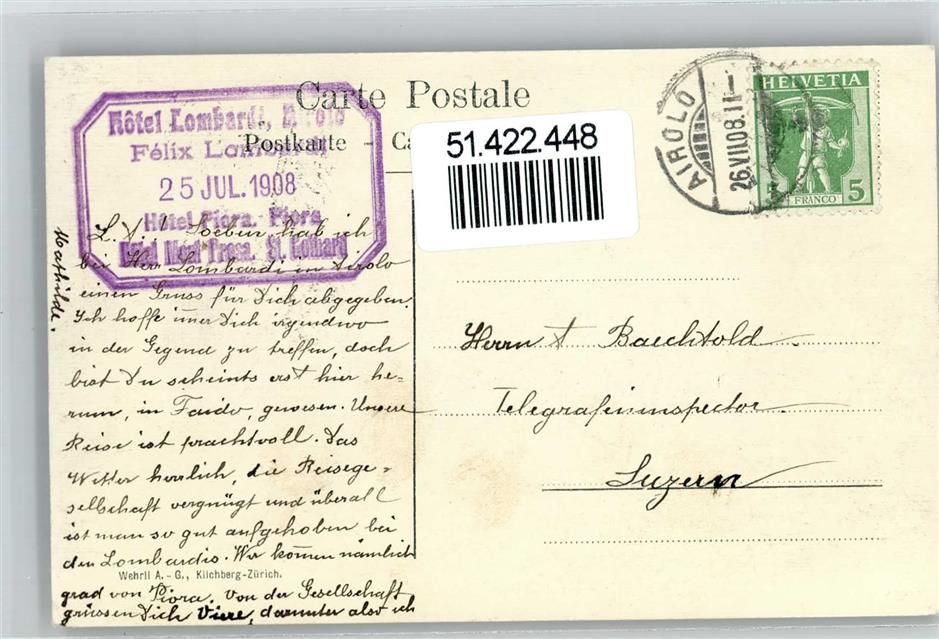 Carte Postale
Postkarte - Ca
Hôtel Lombardi, Airolo
Félix Lombardi
25 JUL. 1908
Hôtel Piora. Piora
Hôtel Mont Prosa. St. Gothard
51.422.448
AIROLO
26.VII.08.11-
HELVETIA
5
FRANCO
L. A.! Soeben hab ich
bei Herr Lombardi in Airolo
einen Gruss für Dich abgegeben.
Ich hoffe im̅er Dich irgendwo
in der Gegend zu treffen, doch
bist Du scheints erst hier he-
rum, in Faido, gewesen. Unsere
Reise ist prachtvoll. Das
Wetter herrlich, die Reisege-
sellschaft vergnügt und überall
ist man so gut aufgehoben bei
den Lombardis. Wir kom̅en nämlich
grad von Piora. Von der Gesellschaft
grüssen Dich Viere, darunter also ich
Mathilde.
Wehrli A.-G., Kilchberg-Zürich.
Herrn A Baechtold
Telegrafeninspector
Luzern